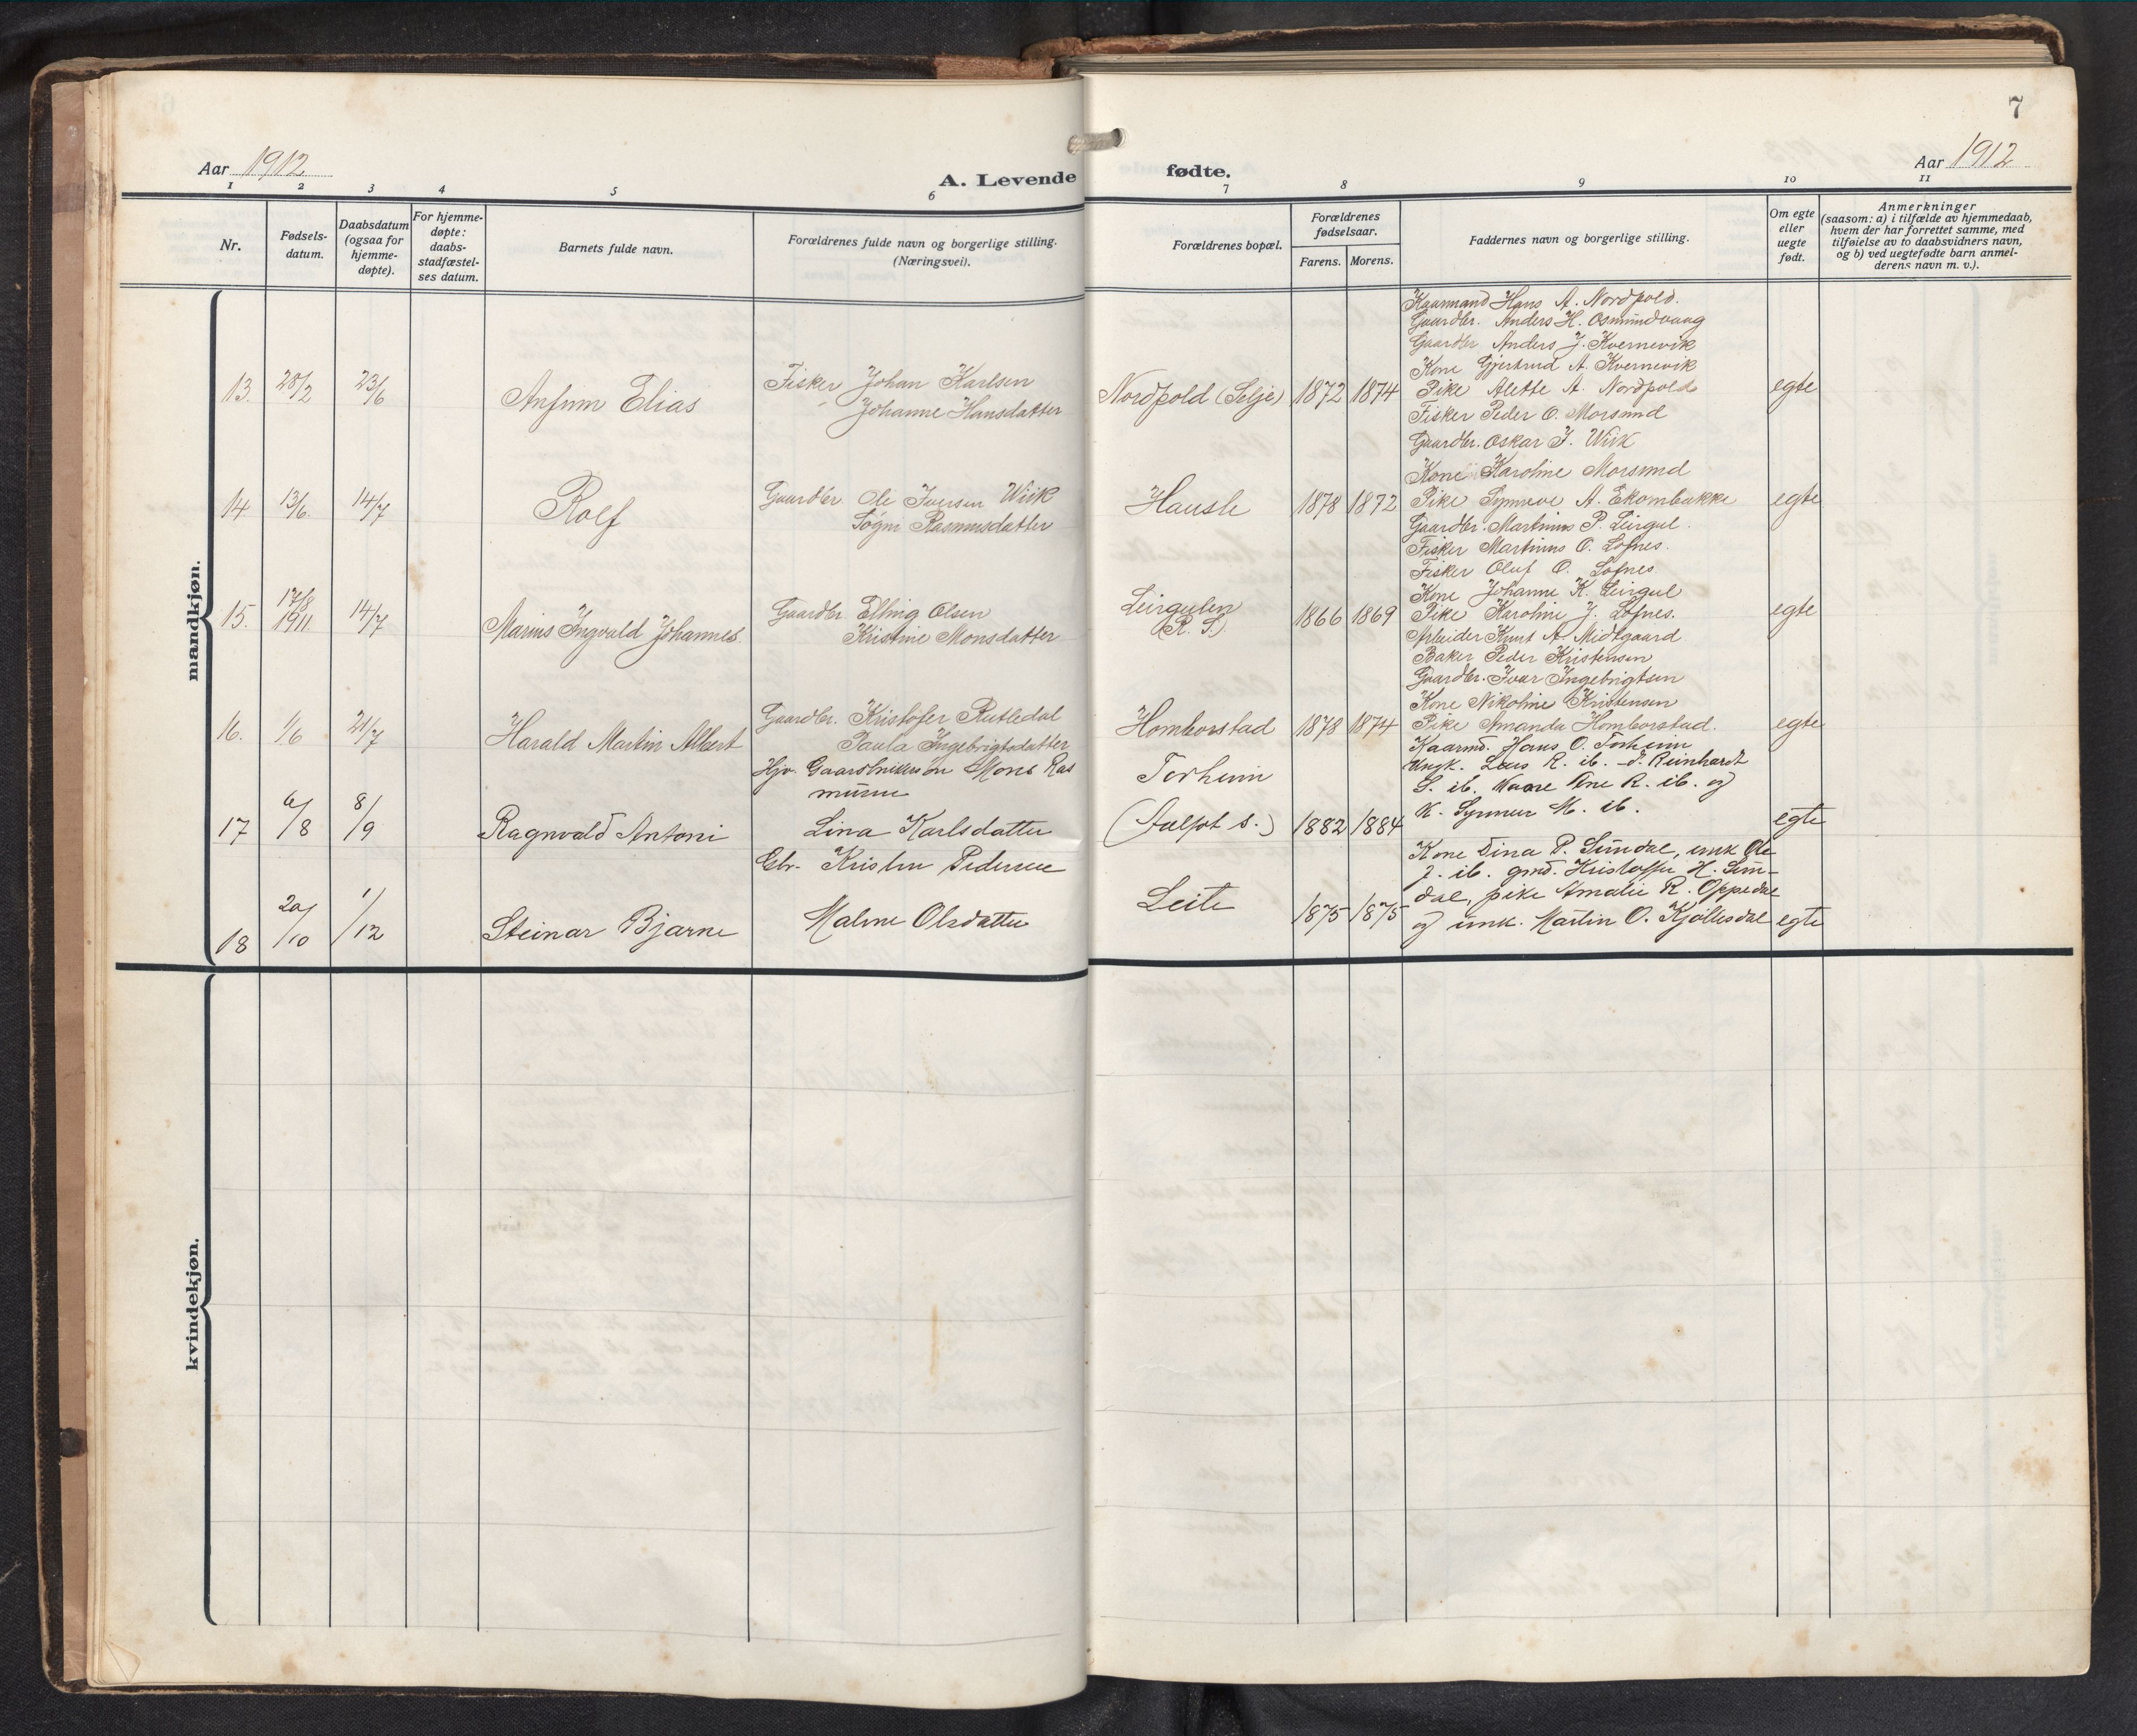 7
Aar 1912
A. Levende fødte.
Aar 1912
1 2 3 4 5 6 7 8 9 10 11
Nr.
Fødsels-
datum.
Daabsdatum
(ogsaa for
hjemme-
døpte).
For hjemme-
døpte:
daabs-
stadfæstel-
ses datum.
Barnets fulde navn.
Forældrenes fulde navn og borgerlige stilling.
(Næringsvei).
Forældrenes bopæl.
Forældrenes
fødselsaar.
Farens. Morens.
Faddernes navn og borgerlige stilling.
Om egte
eller
uegte
født.
Anmerkninger
(saasom: a) i tilfælde av hjemmedaab,
hvem der har forrettet samme, med
tilføielse av to daabsvidners navn,
og b) ved uegtefødte barn anmel-
derens navn m. v.).
mandkjøn.
13. 28/2 23/6 Anfinn Elias
Fisker Johan Karlsen
Johanne Hansdatter
Nordpold (Selje) 1872 1874
Kaarmand Hans A. Nordpold.
Gaardbr. Anders H. Osmundvaag
Gaardbr Anders J. Kvernevik
Kone Gjertrud A. Kvernevik
Pike Alette A. Nordpold
egte
14 13/6. 14/7 Rolf
Gaardbr. Ole Iversen Wiik
Søgni Rasmusdatter
Hausle 1878 1872
Fisker Peder O. Morsund
Gaardbr. Oskar J. Wiik
Kone Karoline Morsund
Pike Synneve A. Ekornbakke
egte
15. 17/8 1911. 14/7 Marius Ingvald Johannes
Gaardbr Elling Olsen
Kristine Monsdatter
Leirgulen
(R. S.)
1866 1869
Gaardbr. Martinus P. Leirgul.
Fisker Martinus O. Lofnes.
Fisker Oluf O. Lofnes
Kone Johanne K. Leirgul
Pike Karoline J. Lofnes.
egte
16. 1/6 21/7 Harald Martin Albert
Gaardbr. Kristofer Rutledal
Paula Ingebrigtsdatter
Homborstad 1878 1874
Arbeider Knut A. Midtgaard
Baker Peder Kristensen
Gaardbr. Ivar Ingebrigtsen
Kone Nikoline Kristensen
Pike Amanda Homborstad.
egte
17 6/8 8/9 Ragnvald Antoni
Hjv. Mons Ras
Lina Karlsdatter
Torheim
1882 1884
Kaarmd. Hans O. Torheim
Ungk. R. ib. Reinhardt
S. ib. Ane R. ib. og
K. M. ib.
egte
18 20/10 1/12 Steinar Bjarne
Gbr. Pedersen
Malene Olsdatter
Leite
1875 1875
Kone Dina P. Simdal, unk Ole
J. ib. gmd. H. Sim-
dal, pike Amalie R. Oppedal
og unk. Martin O. Kjøllesdal
egte
kvindekjøn.